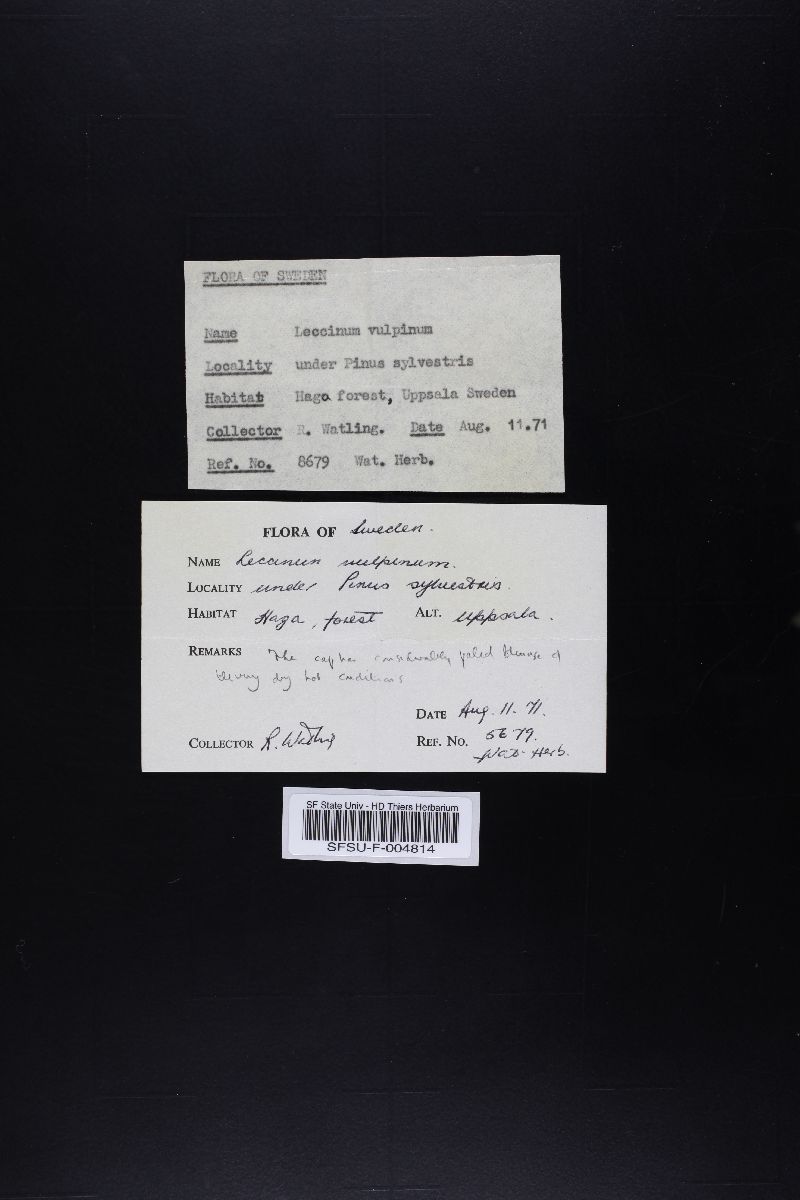 FLORA OF SWEDEN
Name Leccinum vulpinum
Locality under Pinus sylvestris
Habitat Haga forest, Uppsala Sweden
Collector R. Watling. Date Aug. 11.71
Ref. No. 8679 Wat. Herb.
FLORA OF Sweden.
NAME Leccinum vulpinum.
LOCALITY under Pinus sylvestris.
HABITAT Haga, forest ALT. Uppsala.
REMARKS The cap has considerably paled because of
very dry hot conditions
DATE Aug. 11. 71.
COLLECTOR R. Watling REF. NO. 8679.
Wat. Herb.
SF State Univ - HD Thiers Herbarium
SFSU-F-004814